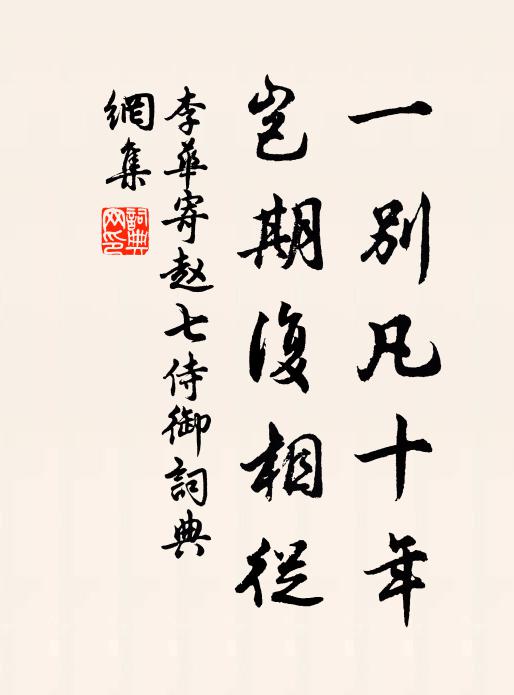 一別凡十年
豈期復相從
李華寄赵七侍御詞典
網集
詞典網印